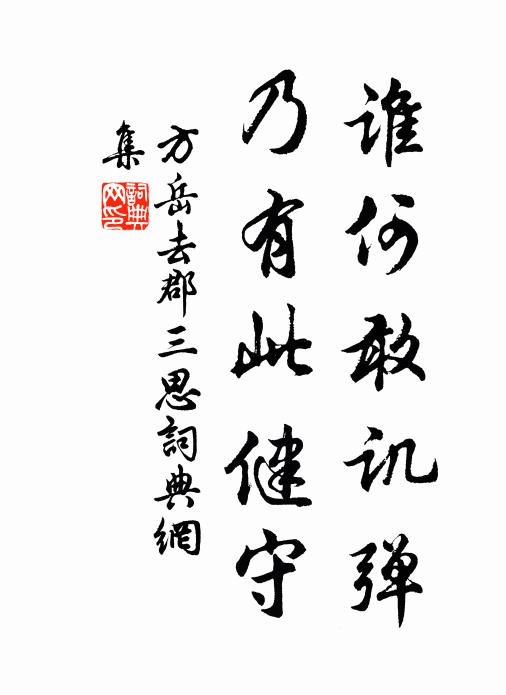 谁何敢讥弹
乃有此健守
方岳去郡三思詞典網
集
詞典网印